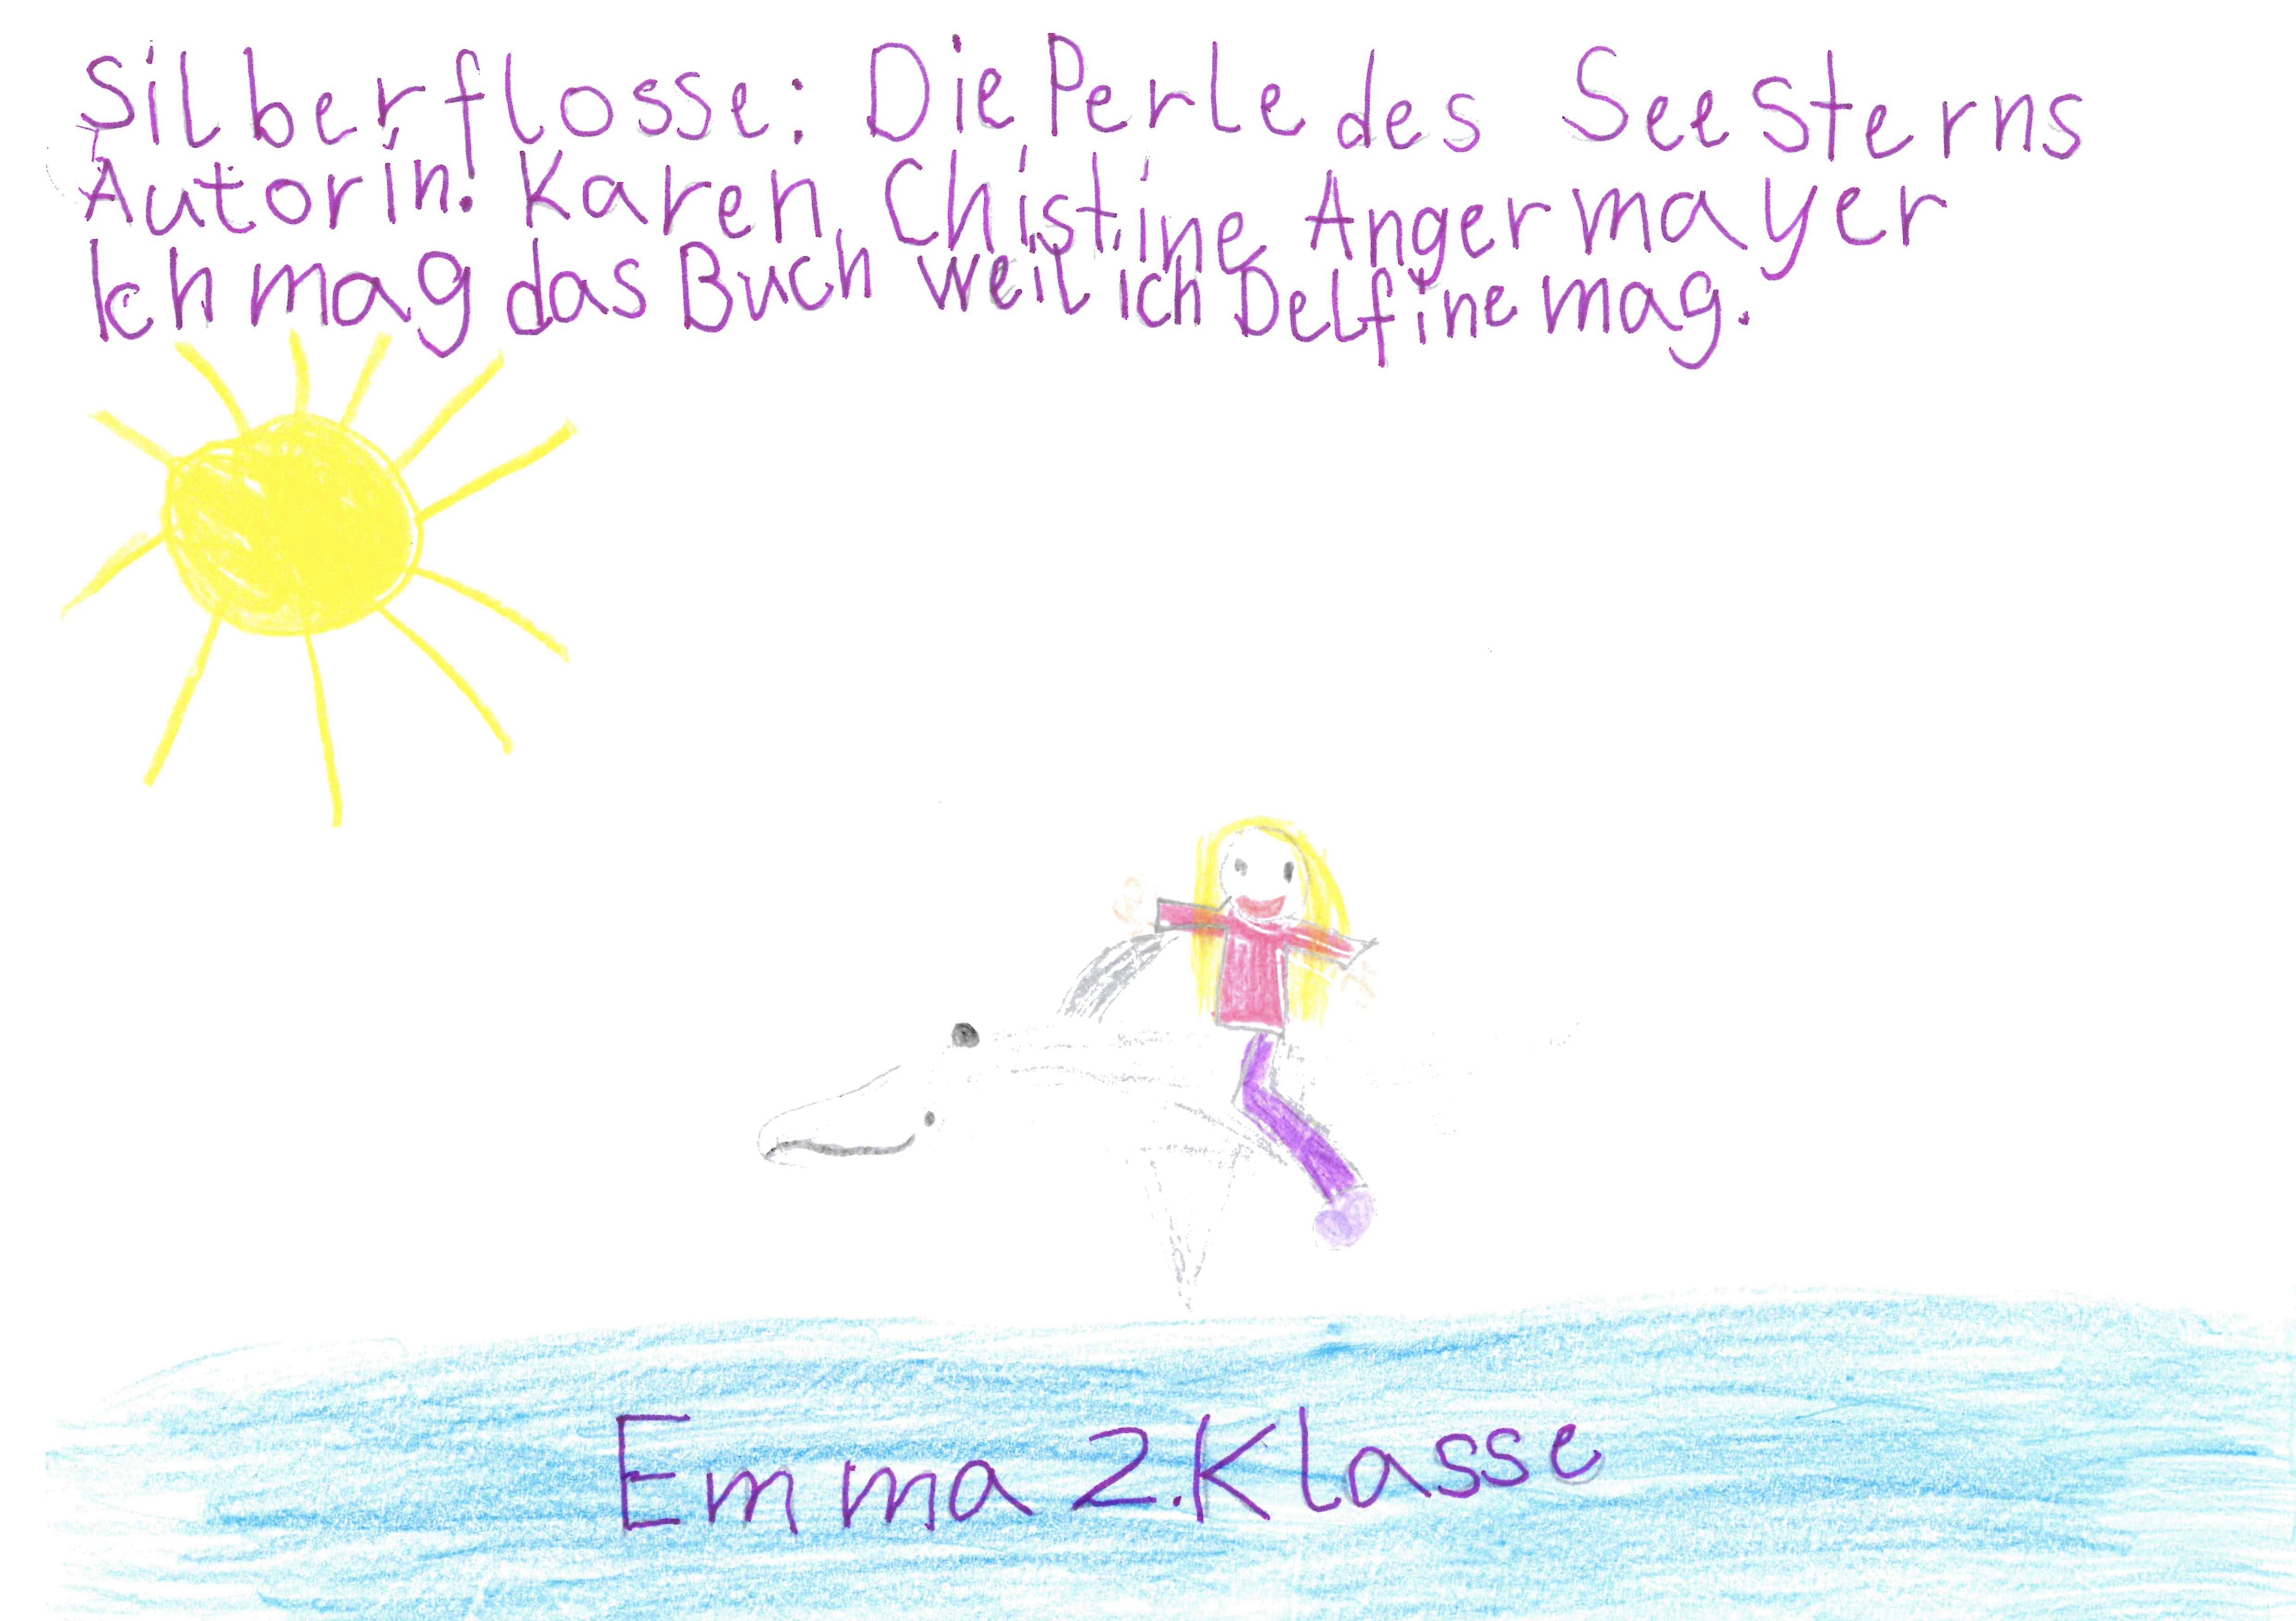 Silberflosse: Die Perle des SeeSterns
Autorin: Karen Chistine Angermayer
Ich mag das Buch weil ich Delfine mag.
Emma 2. Klasse